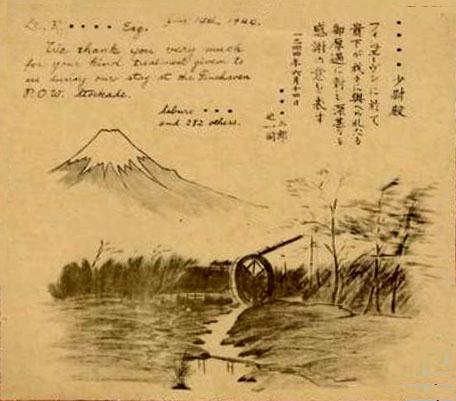 Lt. R. •••• Esq. June 14th, 1944.
We thank you very much
for your kind treatment given to
us during our stay at the Finchaven
P.O.W. Stockade.
Saburo •••
and 282 others.
•••••少尉殿
フィンシハーヴンに於て
貴下が我々に與へられたる
御厚遇に対し深甚なる
感謝の意を表す
一九四四年六月十四日
••••三郎
他一同